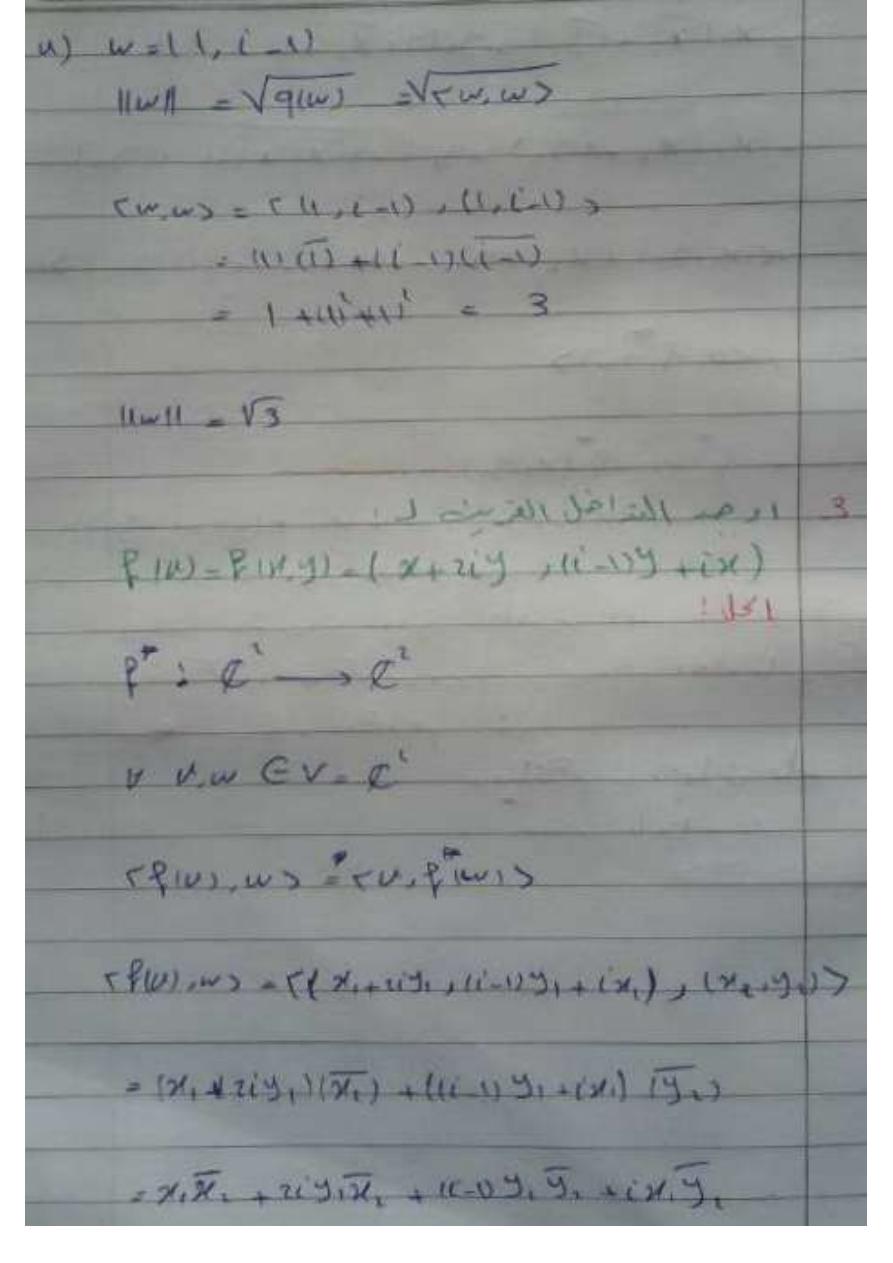 u) w = (1, i-1)
||w|| = √q(w) = √<w, w>
<w, w> = <(1, i-1), (1, i-1)>
= (1)(1̅) + (i-1)(i̅-̅1̅)
= 1 + (1)² + (1)² = 3
||w|| = √3
3 اوجد التداخل القرين لـ :
f(v) = f(x, y) = (x + 2iy, (i-1)y + ix)
الحل :
f* : ℂ² → ℂ²
∀ v, w ∈ V = ℂ²
<f(v), w> = <v, f*(w)>
<f(v), w> = <(x₁ + 2iy₁, (i-1)y₁ + ix₁), (x₂, y₂)>
= (x₁ + 2iy₁)(x̅₂) + ((i-1)y₁ + ix₁)(y̅₂)
= x₁x̅₂ + 2iy₁x̅₂ + (i-1)y₁y̅₂ + ix₁y̅₂